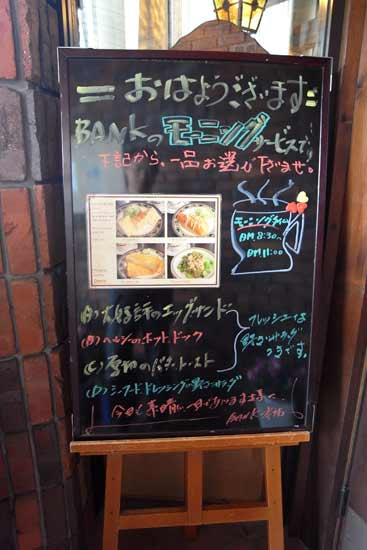 = おはようございます =
BANKの モーニングサービスです
下記から、一品お選び下さいませ。
モーニングタイム
AM 8:30〜
AM 11:00
(A) 大好評のエッグサンド
(B) ヘルシーホットドック
(C) 厚切のバタートースト
(D) シーフードドレッシングの野菜サラダ
フレッシュな
野菜サラダ
つきです。
今日も素晴しい一日であります様に、
BANK